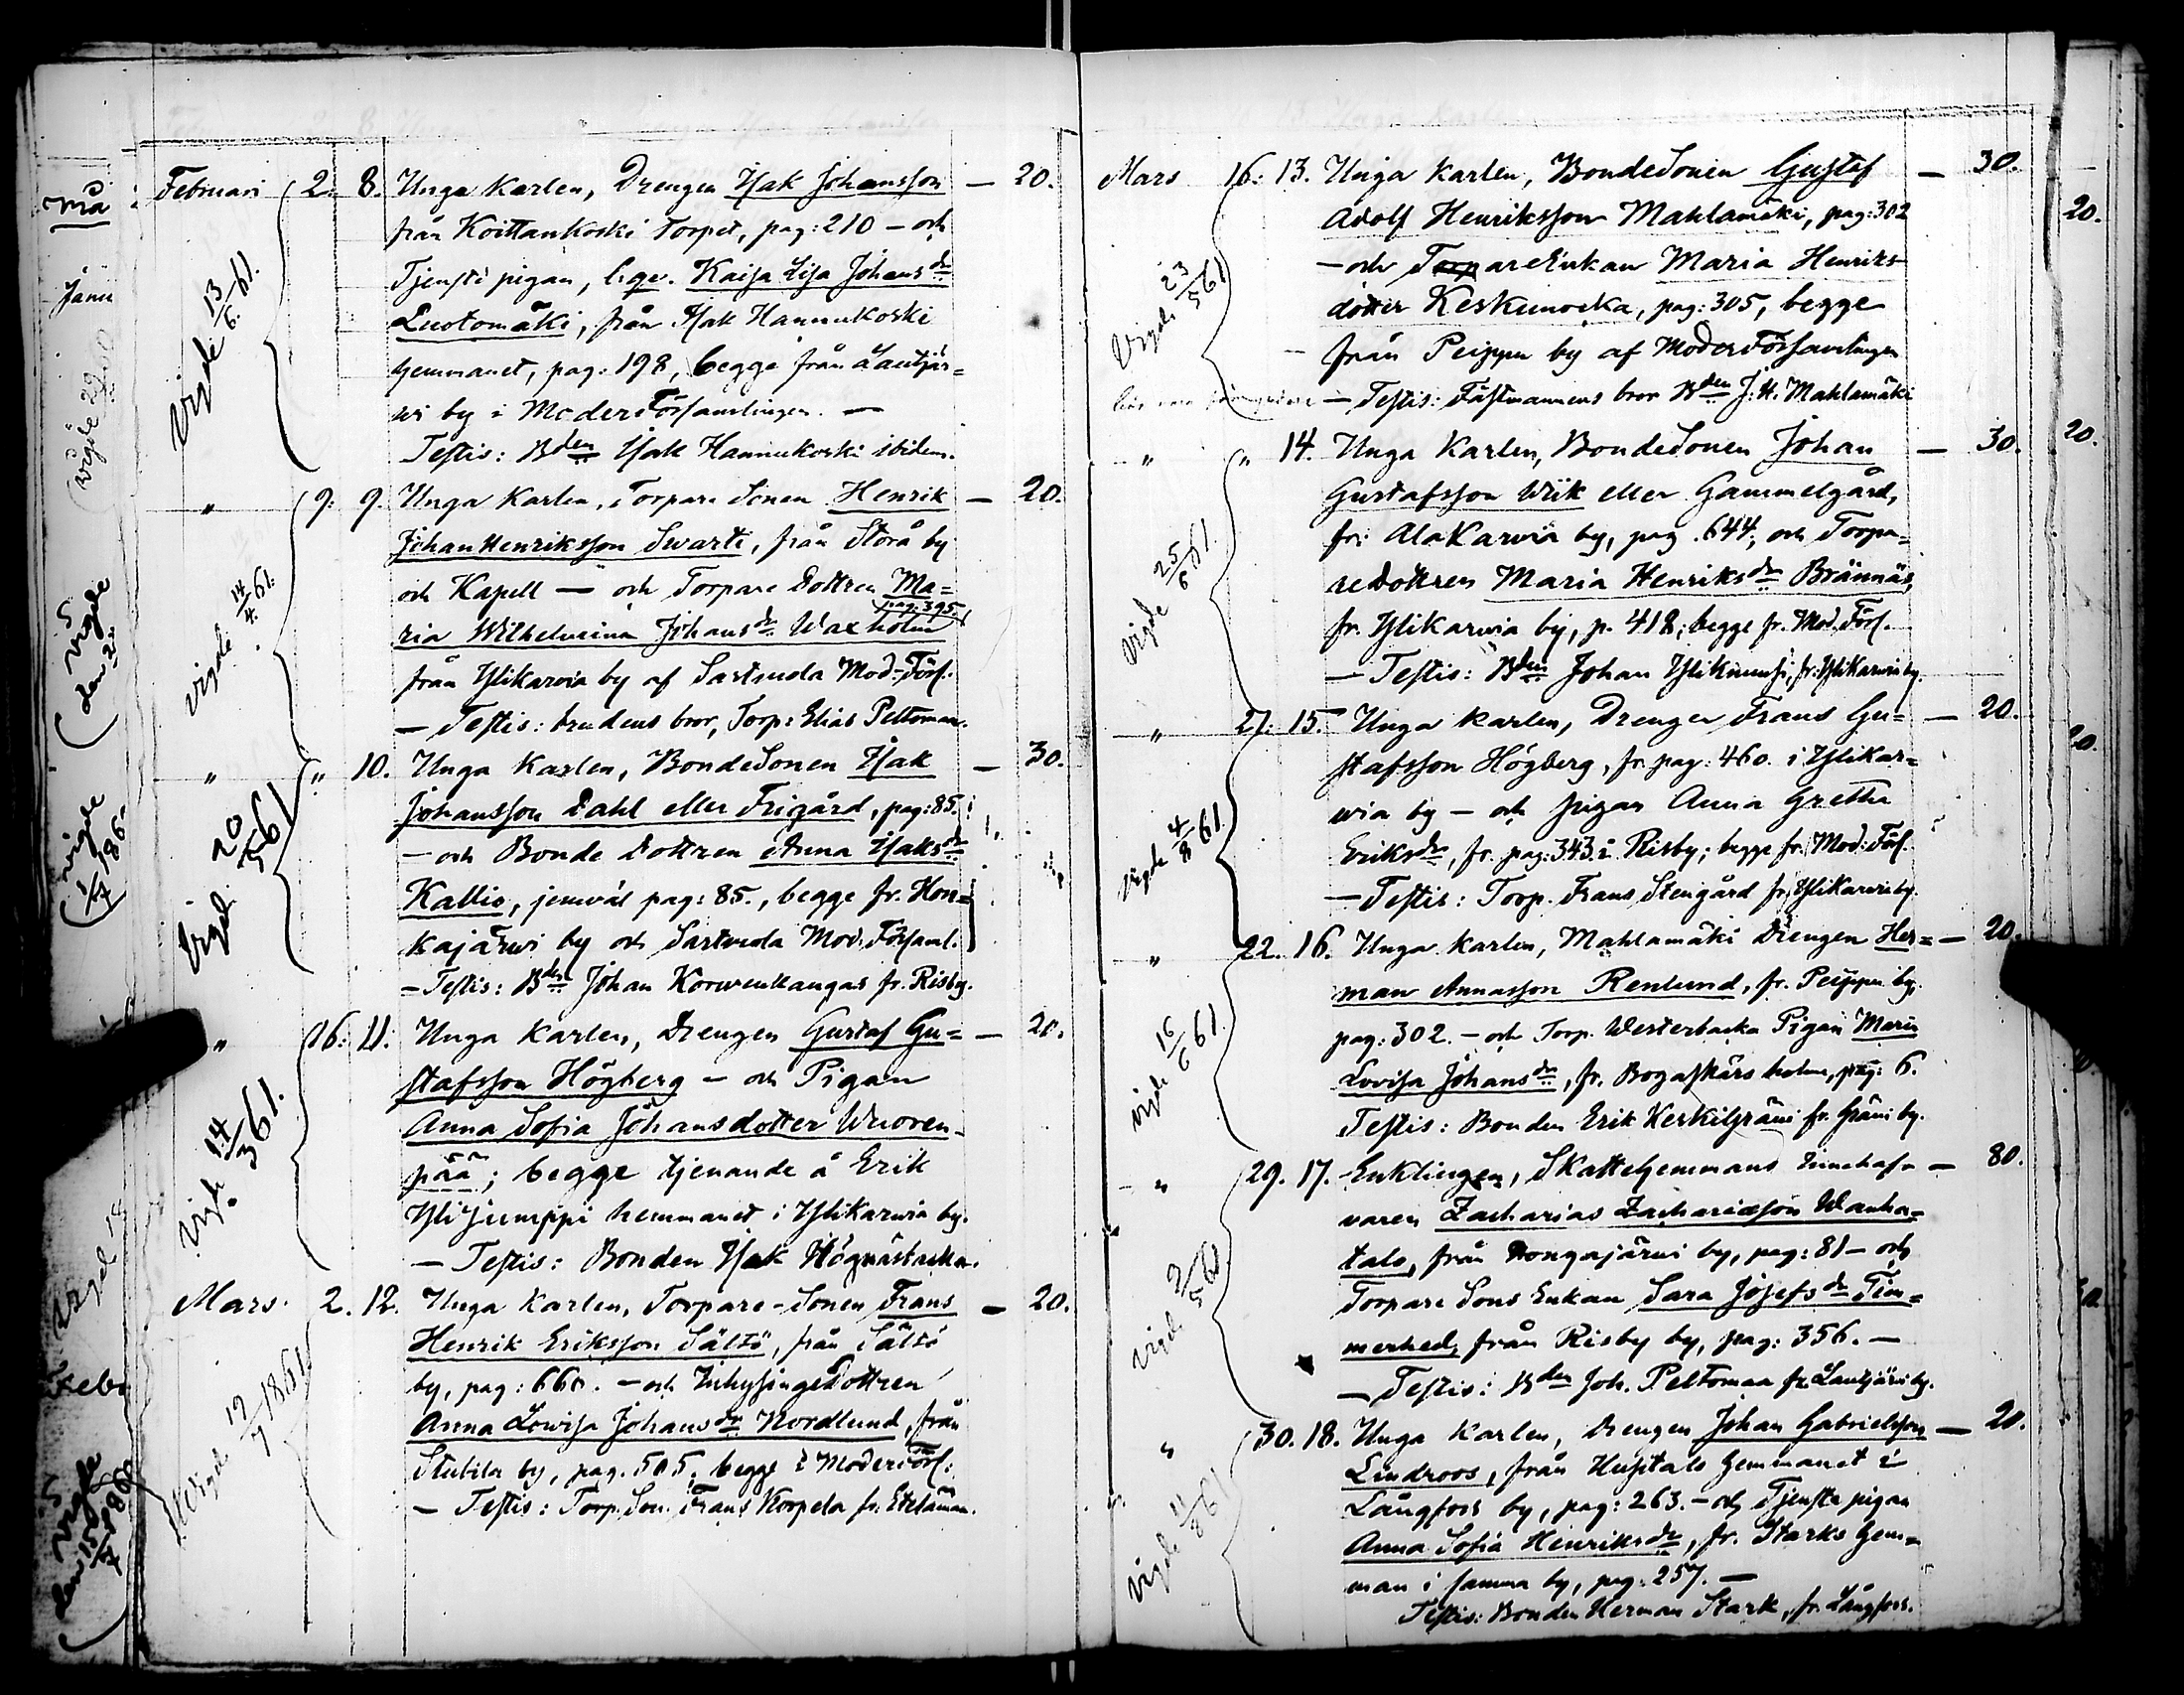 Februari 2. 8. Unga Karlen, Drengen Isak Johansson — 20.
från Koittankoski Torpet, pag: 210 — och
Tjenste pigan, Kaisa Lisa Johansdr
Luotomäki, från Isak Hannukoski
hemmanet, pag: 198, begge från Lautjär=
wi by i Moderförsamlingen. —
Testis: Bden Isak Hannukoski ibidem.
Vigde 13/6 61.
" 9. 9. Unga Karlen, Torpare Sonen Henrik — 20.
Johan Henriksson Swarti, från Storå by
och Kapell — och Torpare Dottren Ma=
pag: 395.
ria Wilhelmina Johansdr Waxholm
från Ylikarvia by af Sastmola Mod-Förs.
— Testis: brudens bror, Torp: Elias Peltomaa.
Vigde 14/4 61.
" " 10. Unga Karlen, BondeSonen Isak — 30.
Johansson Dahl eller Frigård, pag: 85.
— och Bonde Dottren Anna Isaksdr
Kallio, jemväl pag: 85., begge fr. Hon=
kajärwi by och Sastmola Mod. Församl.
— Testis: Bden Johan Korwenkangas fr. Risby.
Vigd. 20/5 61
" 16. 11. Unga Karlen, Drengen Gustaf Gu= — 20.
stafsson Högberg — och Pigan
Anna Sofia Johansdotter Wuoren=
pää; begge tjenande å Erik
Ylijumppi hemmanet i Ylikarwia by.
— Testis: Bonden Isak Högnäsbacka.
Vigde 14/3 61.
Mars. 2. 12. Unga Karlen, Torpare-Sonen Frans — 20.
Henrik Eriksson Sältö, från Sältö
by, pag: 660. — och InhysingeDottren
Anna Lowisa Johansdr Nordlund, från
by, pag. 505, begge i Moderförs:
— Testis: Torp. Son. Frans Korpela fr.
Vigde 19/7 1861
Mars 16. 13. Unga Karlen, BondeSonen Gustaf — 30.
Adolf Henriksson Mahlamäki, pag: 302
— och TorpareEnkan Maria Henriks
dotter Keskinocka, pag: 305, begge
från Peippu by af ModerFörsamlingen
— Testis: Fästmannens bror Bden J: H. Mahlamäki
Vigde 23/5 61
" " 14. Unga Karlen, BondeSonen Johan — 30.
Gustafsson Wiik eller Gammelgård,
fr: AlaKarvia by, pag. 644, och Torpa=
redottren Maria Henriksdr Brännäs,
fr. Ylikarvia by, p. 418; begge fr. Mod. Förs.
— Testis: Bden Johan Yliknuusi, fr. Ylikarvia by.
Vigde 25/6 61.
" 21. 15. Unga Karlen, Drengen Frans Gu= — 20.
stafsson Högberg, fr. pag: 460. i Ylikar=
wia by — och pigan Anna Gretha
Eriksdr, fr. pag: 343. i Risby; begge fr. Mod: Förs.
— Testis: Torp. Frans Stengård fr. Ylikarwia by.
Vigde 4/8 61.
" 22. 16. Unga Karlen, Mahlamäki Drengen Her= — 20.
man Annasson Renlund, fr. Peippu by,
pag: 302. — och Torp. Westerbacka Pigan Maria
Lovisa Johansdr, fr. Bogaskärs holm, pag: 6.
Testis: Bonden Erik Keskilgräni fr. Gräni by.
Vigde 16/6 61.
" 29. 17. Enklingen, Skattehemmans Innehaf= — 80.
varen Zacharias Zachariasson Wanha=
talo, från Hongajärwi by, pag: 81 — och
Torpare Sons Enkan Sara Josefsdr Tim=
merhed, från Risby by, pag: 356. —
— Testis: Bden Joh. Peltomaa fr. Lautjärwi by.
" 30. 18. Unga Karlen, Drengen Johan Gabrielsson — 20.
Lindroos, från Hemmanet i
Långfors by, pag: 263. — och Tjenste pigan
Anna Sofia Henriksdr, fr. Starks hem=
man i samma by, pag: 257. —
Testis: Bonden Herman Stark, fr. Långfors.